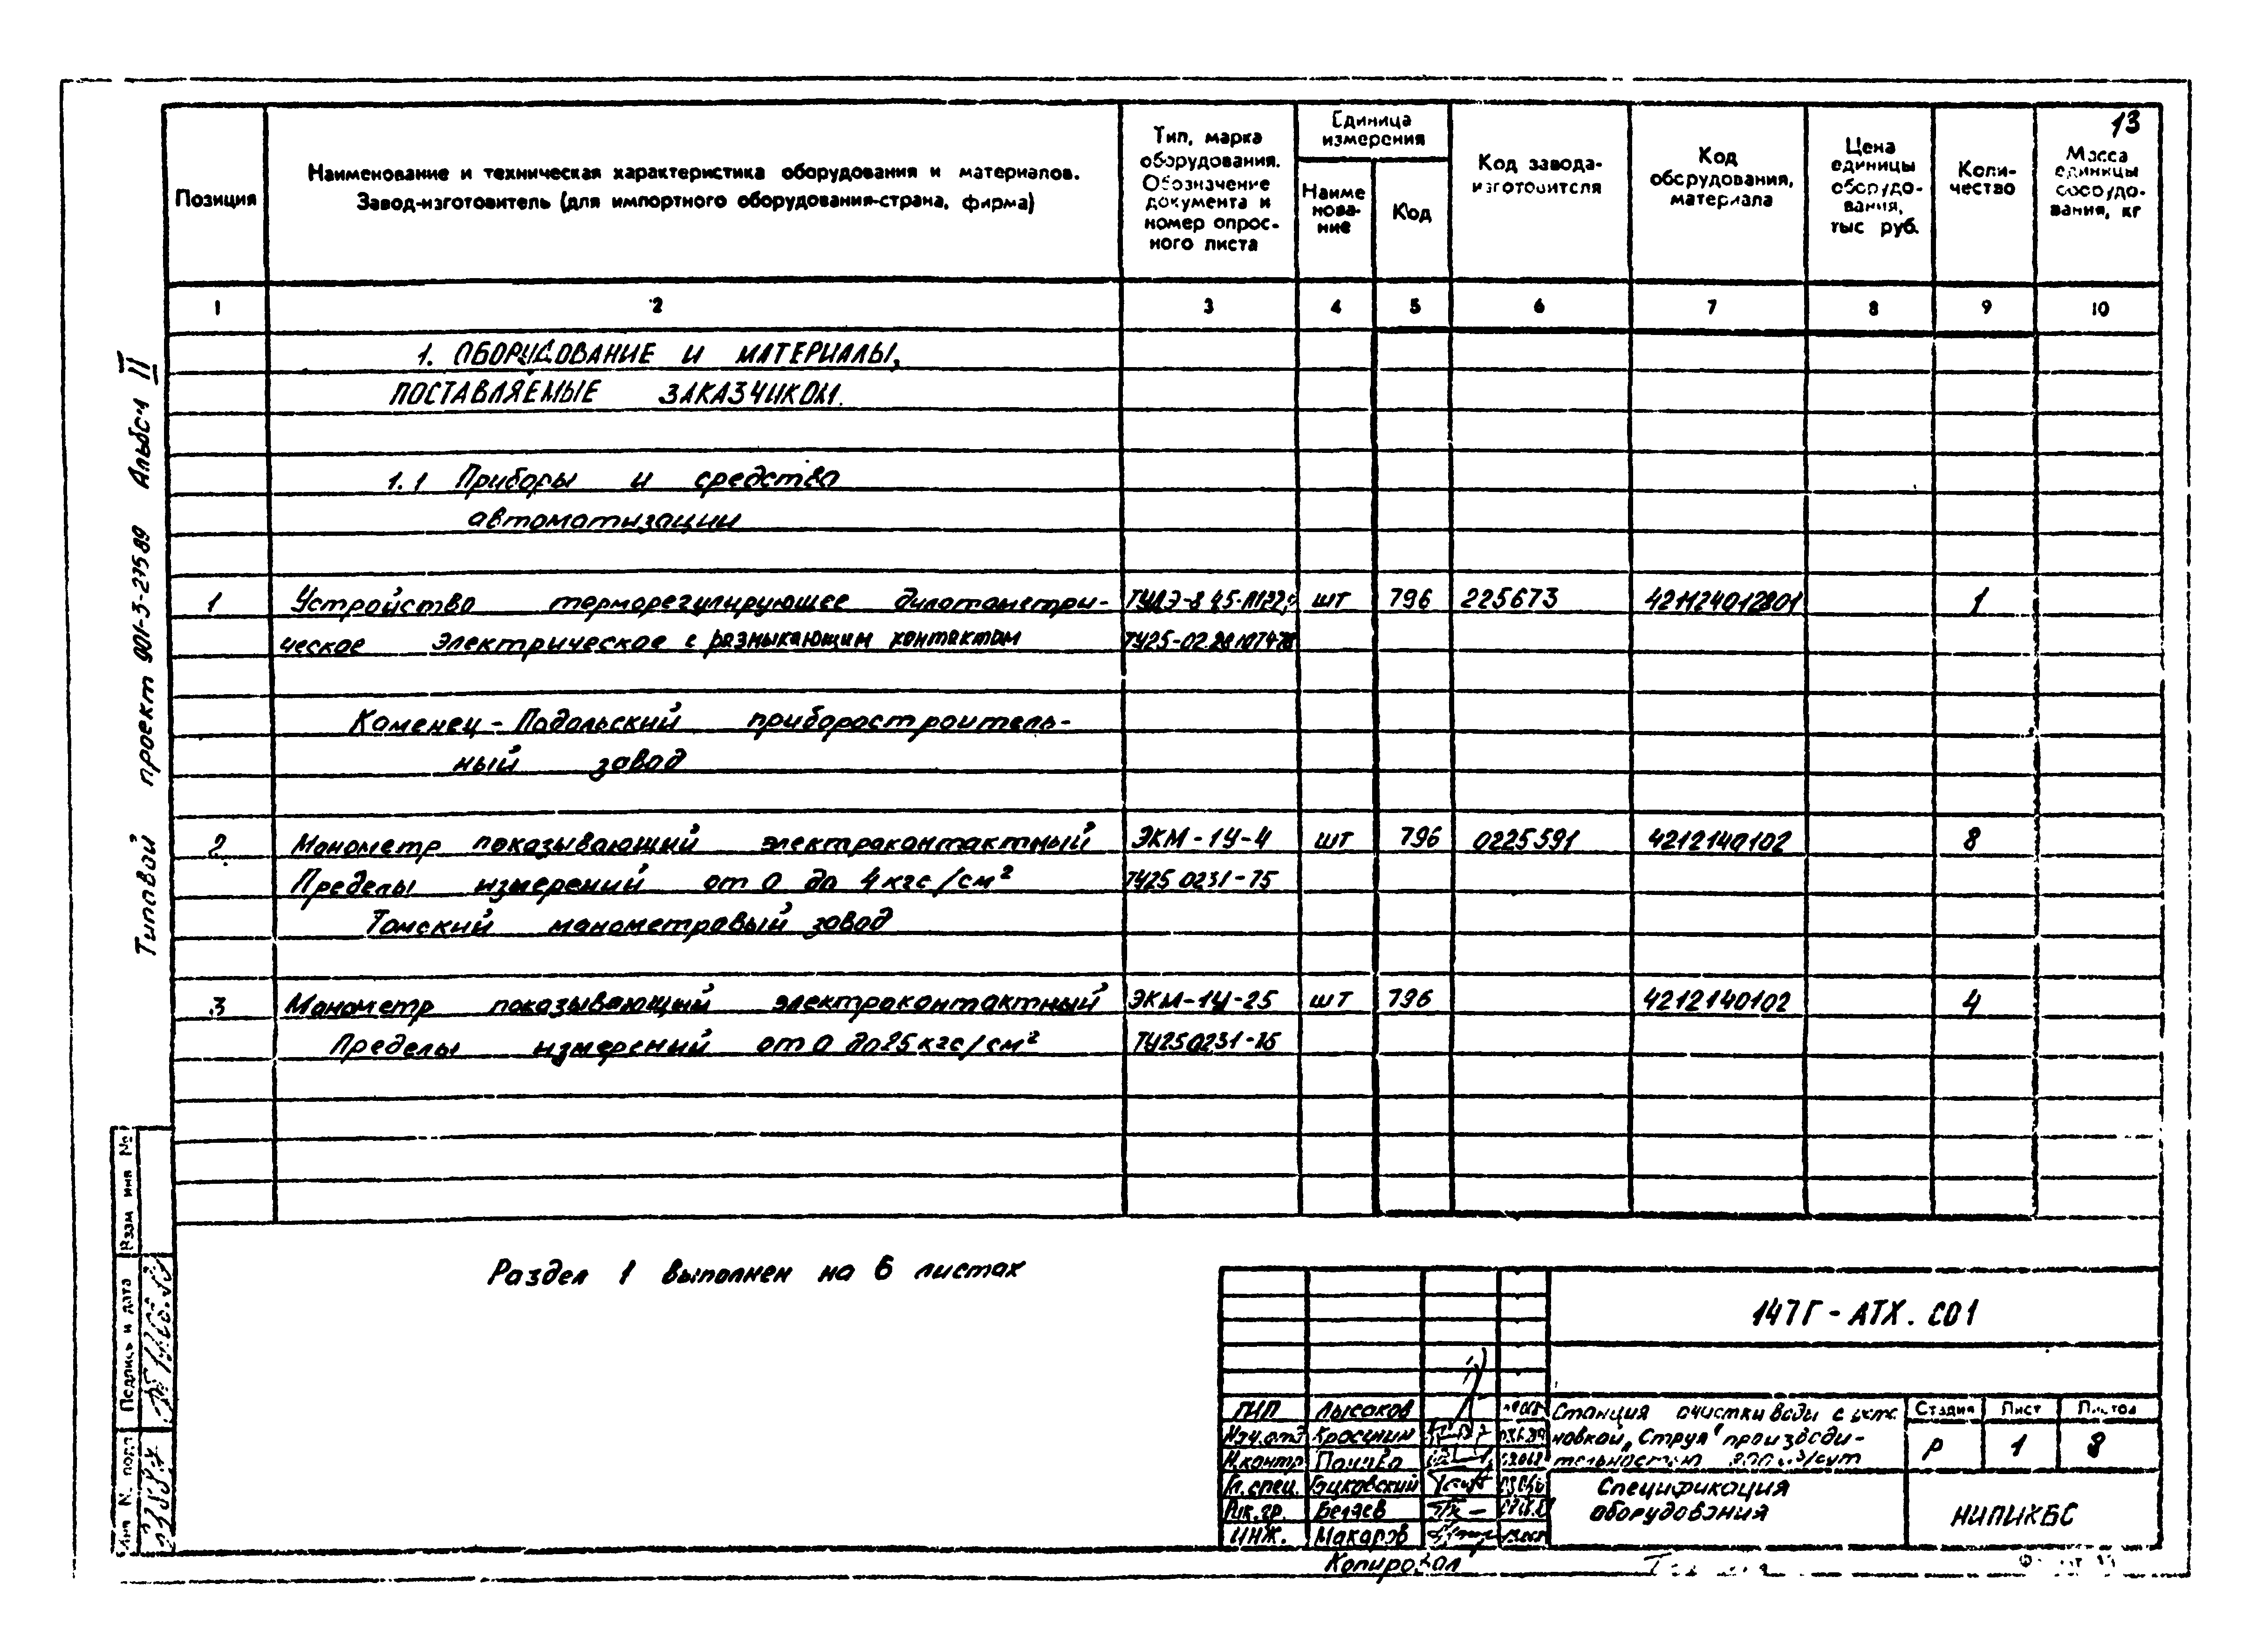 13
Позиция
Наименование и техническая характеристика оборудования и материалов.
Завод-изготовитель (для импортного оборудования-страна, фирма)
Тип, марка
оборудования.
Обозначение
документа и
номер опрос-
ного листа
Единица
измерения
Наиме
нова-
ние
Код
Код завода-
изготовителя
Код
оборудования,
материала
Цена
единицы
оборудо-
вания,
тыс руб.
Коли-
чество
Масса
единицы
оборудо-
вания, кг
1 2 3 4 5 6 7 8 9 10
1. ОБОРУДОВАНИЕ И МАТЕРИАЛЫ,
ПОСТАВЛЯЕМЫЕ ЗАКАЗЧИКОМ.
1.1 Приборы и средства
автоматизации
1 Устройство терморегулирующее дилатометри- шт 796 225673 421124012801 1
ческое электрическое с размыкающим контактом
Каменец-Подольский приборостроитель-
ный завод
2 Манометр показывающий электроконтактный ЭКМ-1У-4 шт 796 0225591 4212140102 8
Пределы измерений от 0 до 4 кгс/см² ТУ25 0231-75
Томский манометровый завод
3 Манометр показывающий электроконтактный ЭКМ-1У-25 шт 796 4212140102 4
Пределы измерений от 0 до 25 кгс/см² ТУ25 0231-75
Раздел 1 выполнен на 6 листах
Типовой проект 901-3-275 89 Альбом II
Взам инв №
Подпись и дата
Инв № подл
147Г-АТХ.СО1
ГИП Лысаков
Нач.отд Красинин
Н.контр
Гл.спец.
Рук.гр. Беляев
ИНЖ. Макаров
Станция очистки воды с уста
новкой „Струя" производи-
тельностью 800 м³/сут
Стадия Лист Листов
Р 1 8
Спецификация
оборудования
НИПИКБС
Копировал